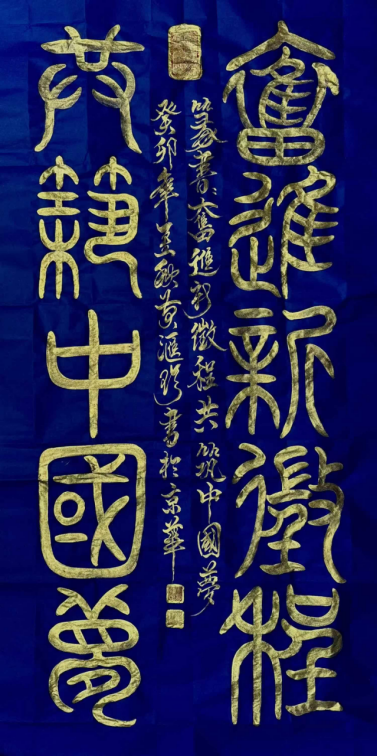 奮進新徵程
共築中國夢
篆書奮進新徵程共筑中國夢
癸卯年秋黄滙書於京華